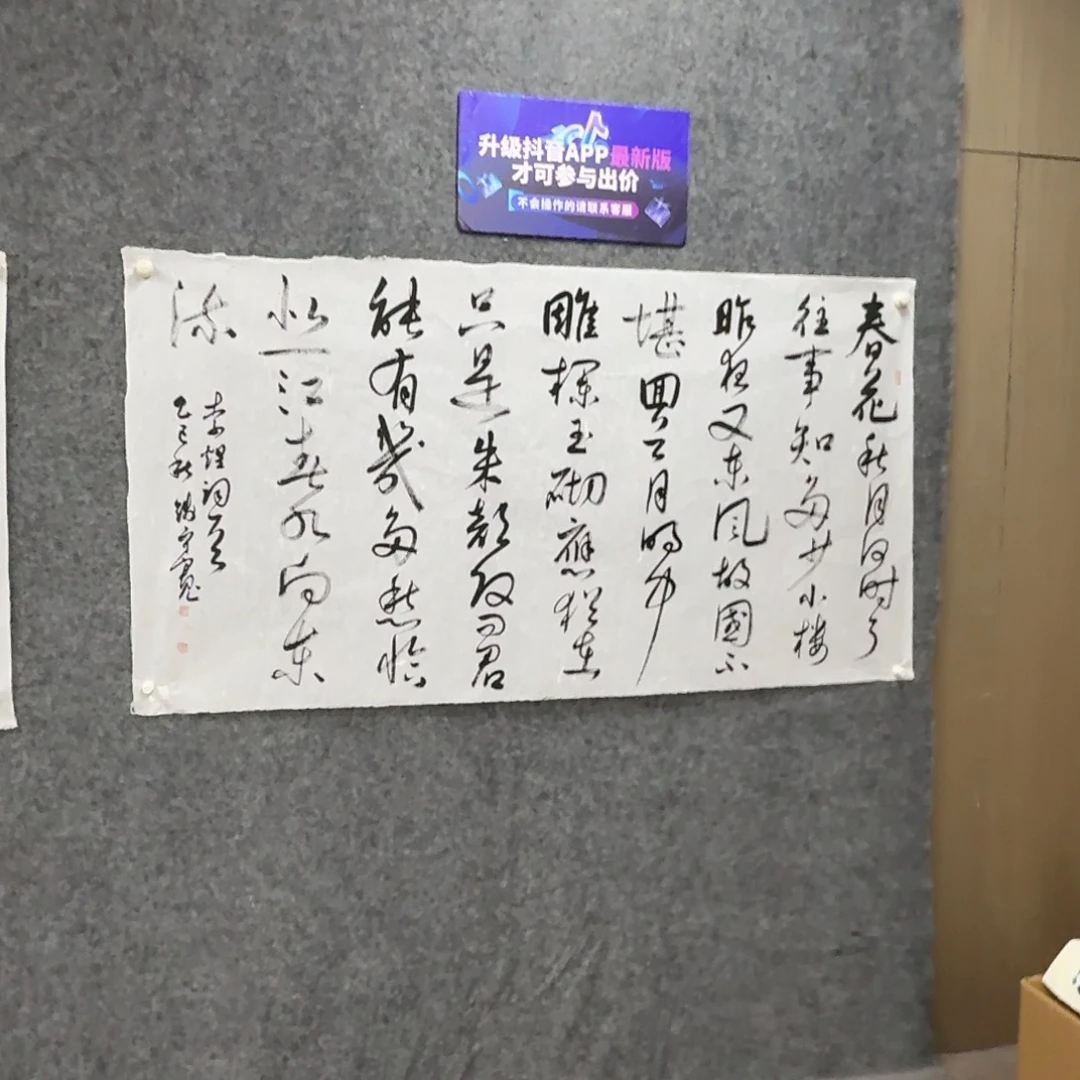 升级抖音APP最新版
才可参与出价
不会操作的请联系客服
春花秋月何时了
往事知多少小楼
昨夜又东风故國不
堪回首月明中
雕栏玉砌應犹在
只是朱颜改问君
能有幾多愁恰
似一江春水向东
流
李煜词一首
乙巳秋